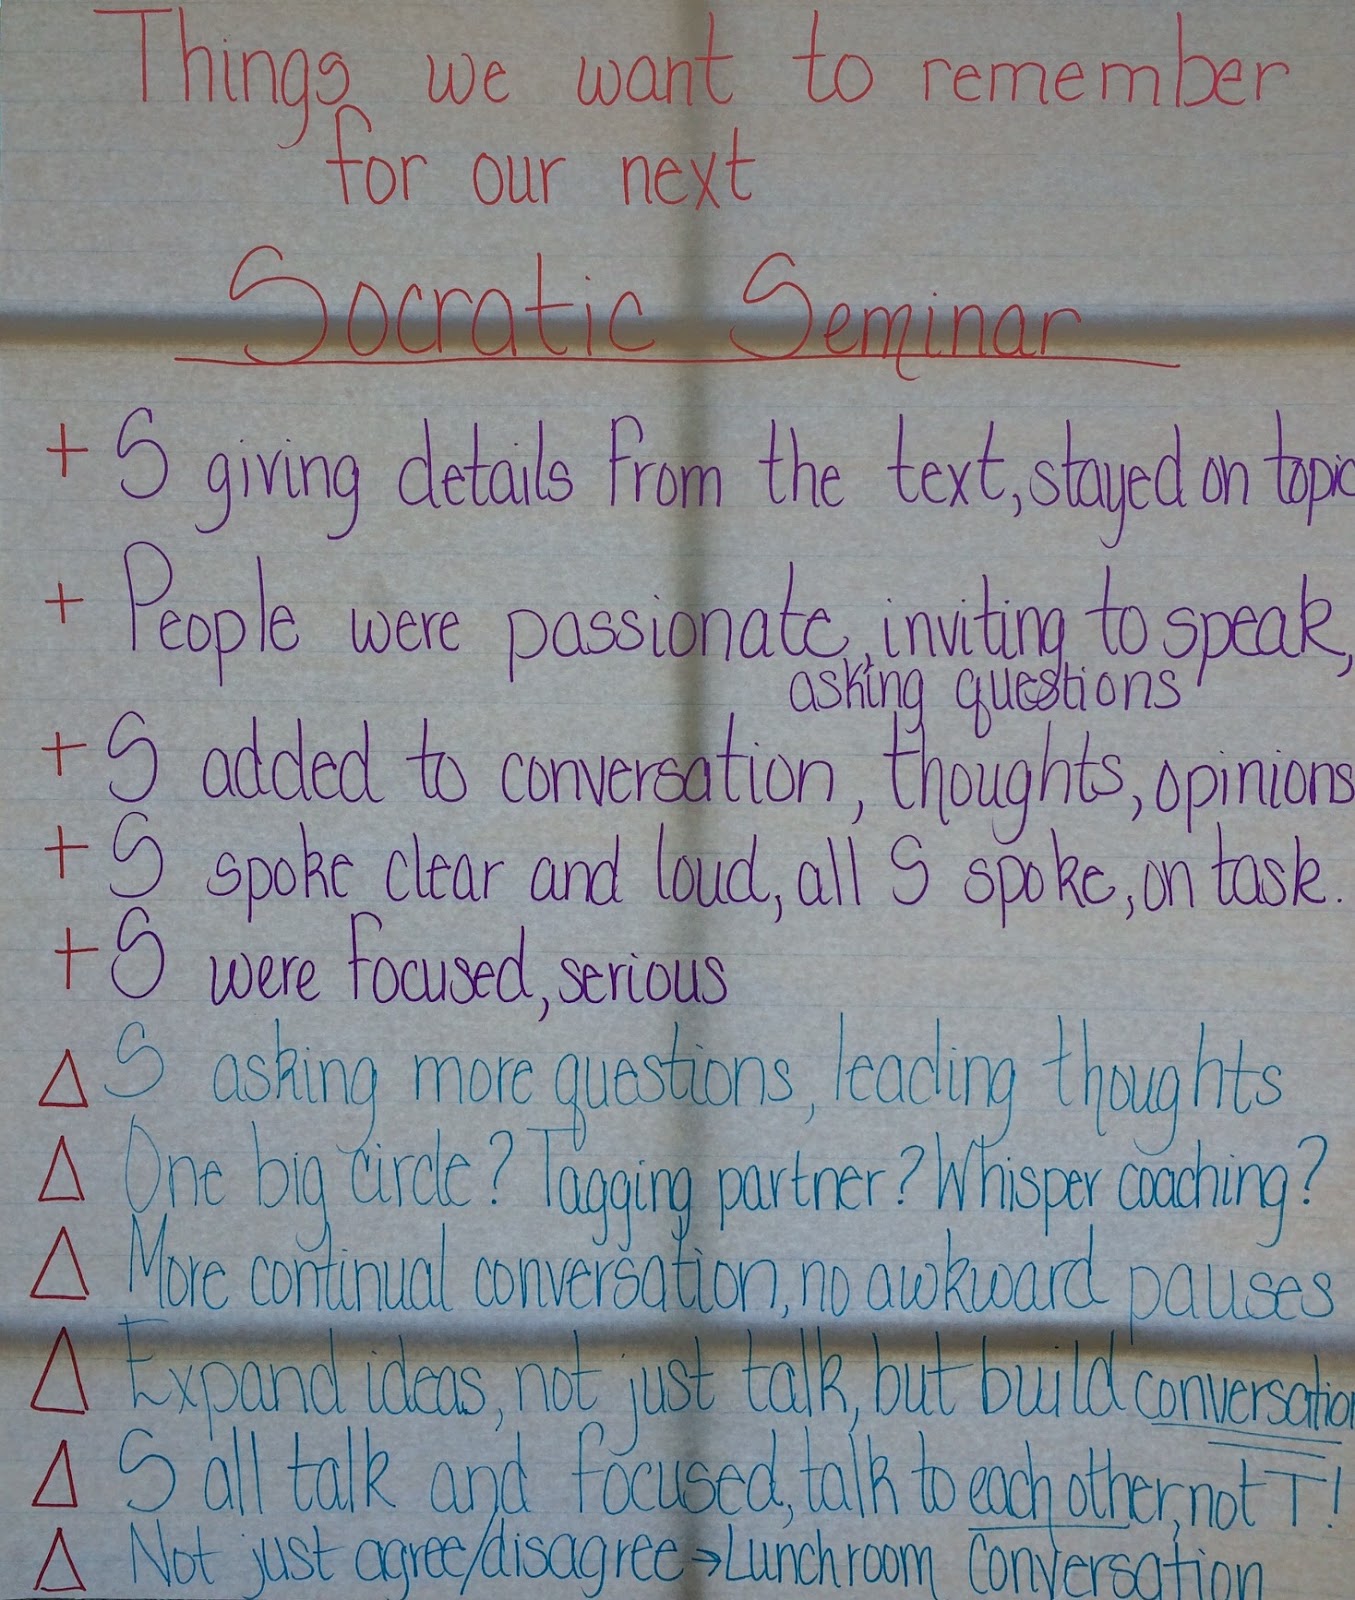 Things we want to remember
for our next
Socratic Seminar
+ S giving details from the text, stayed on topic
+ People were passionate, inviting to speak,
asking questions
+ S added to conversation, thoughts, opinions
+ S spoke clear and loud, all S spoke, on task.
+ S were focused, serious
Δ S asking more questions, leading thoughts
Δ One big circle? Tagging partner? Whisper coaching?
Δ More continual conversation, no awkward pauses
Δ Expand ideas, not just talk, but build conversation
Δ S all talk and focused, talk to each other, not T!
Δ Not just agree/disagree → Lunchroom Conversation